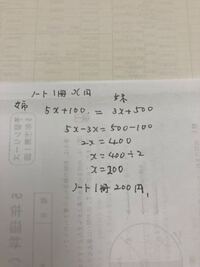 ノート1冊 x円
姉 妹
5x+100 = 3x+500
5x-3x=500-100
2x=400
x=400÷2
x=200
ノート1冊200円,